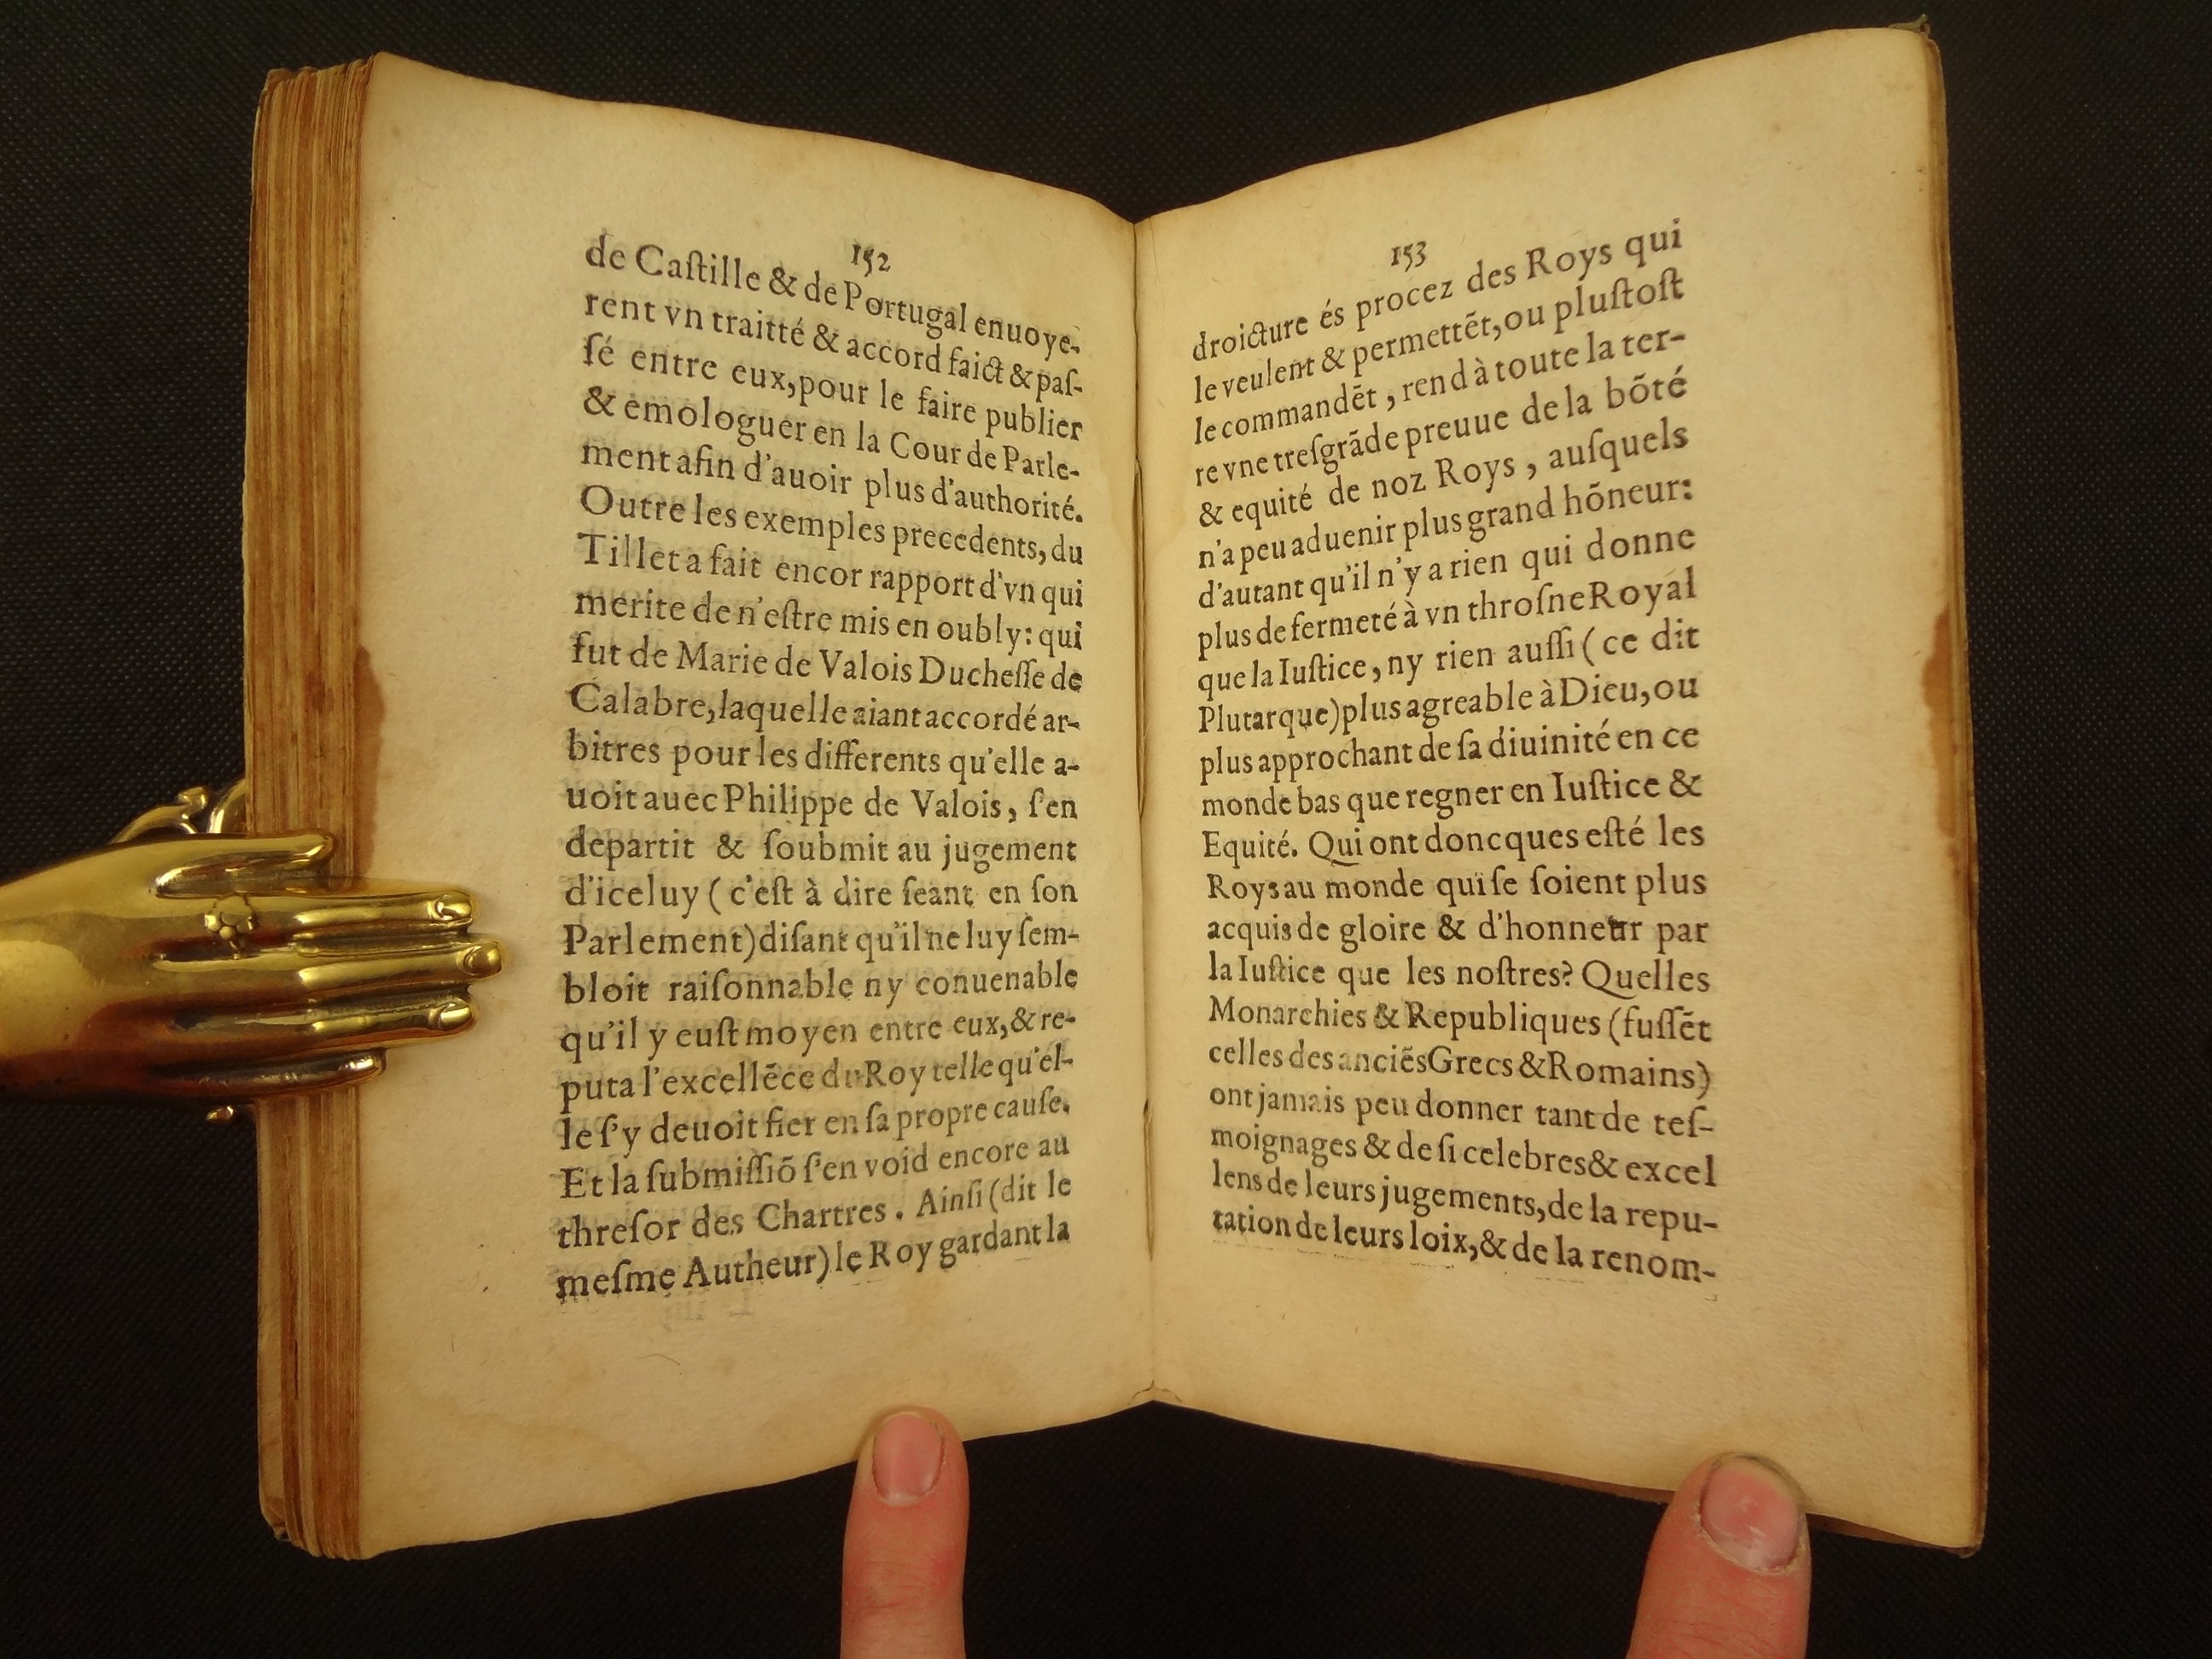 152
de Caſtille & de Portugal enuoye-
rent vn traitté & accord faict & paſ-
ſé entre eux, pour le faire publier
& emologuer en la Cour de Parle-
ment afin d'auoir plus d'authorité.
Outre les exemples precedents, du
Tillet a fait encor rapport d'vn qui
merite de n'eſtre mis en oubly: qui
fut de Marie de Valois Ducheſſe de
Calabre, laquelle aiant accordé ar-
bitres pour les differents qu'elle a-
uoit auec Philippe de Valois, ſ'en
departit & ſoubmit au jugement
d'iceluy (c'eſt à dire ſeant en ſon
Parlement) diſant qu'il ne luy ſem-
bloit raiſonnable ny conuenable
qu'il y euſt moyen entre eux, & re-
puta l'excellẽce du Roy telle qu'el-
le ſ'y deuoit fier en ſa propre cauſe.
Et la ſubmiſſiõ ſ'en void encore au
threſor des Chartres. Ainſi (dit le
meſme Autheur) le Roy gardant la
153
droicture és procez des Roys qui
le veulent & permettẽt, ou pluſtoſt
le commandẽt, rend à toute la ter-
re vne treſgrãde preuue de la bõté
& equité de noz Roys, auſquels
n'a peu aduenir plus grand hõneur:
d'autant qu'il n'y a rien qui donne
plus de fermeté à vn throſne Royal
que la Iuſtice, ny rien auſſi (ce dit
Plutarque) plus agreable à Dieu, ou
plus approchant de ſa diuinité en ce
monde bas que regner en Iuſtice &
Equité. Qui ont doncques eſté les
Roys au monde qui ſe ſoient plus
acquis de gloire & d'honneur par
la Iuſtice que les noſtres? Quelles
Monarchies & Republiques (fuſſẽt
celles des anciẽs Grecs & Romains)
ont jamais peu donner tant de teſ-
moignages & de ſi celebres & excel
lens de leurs jugements, de la repu-
tation de leurs loix, & de la renom-